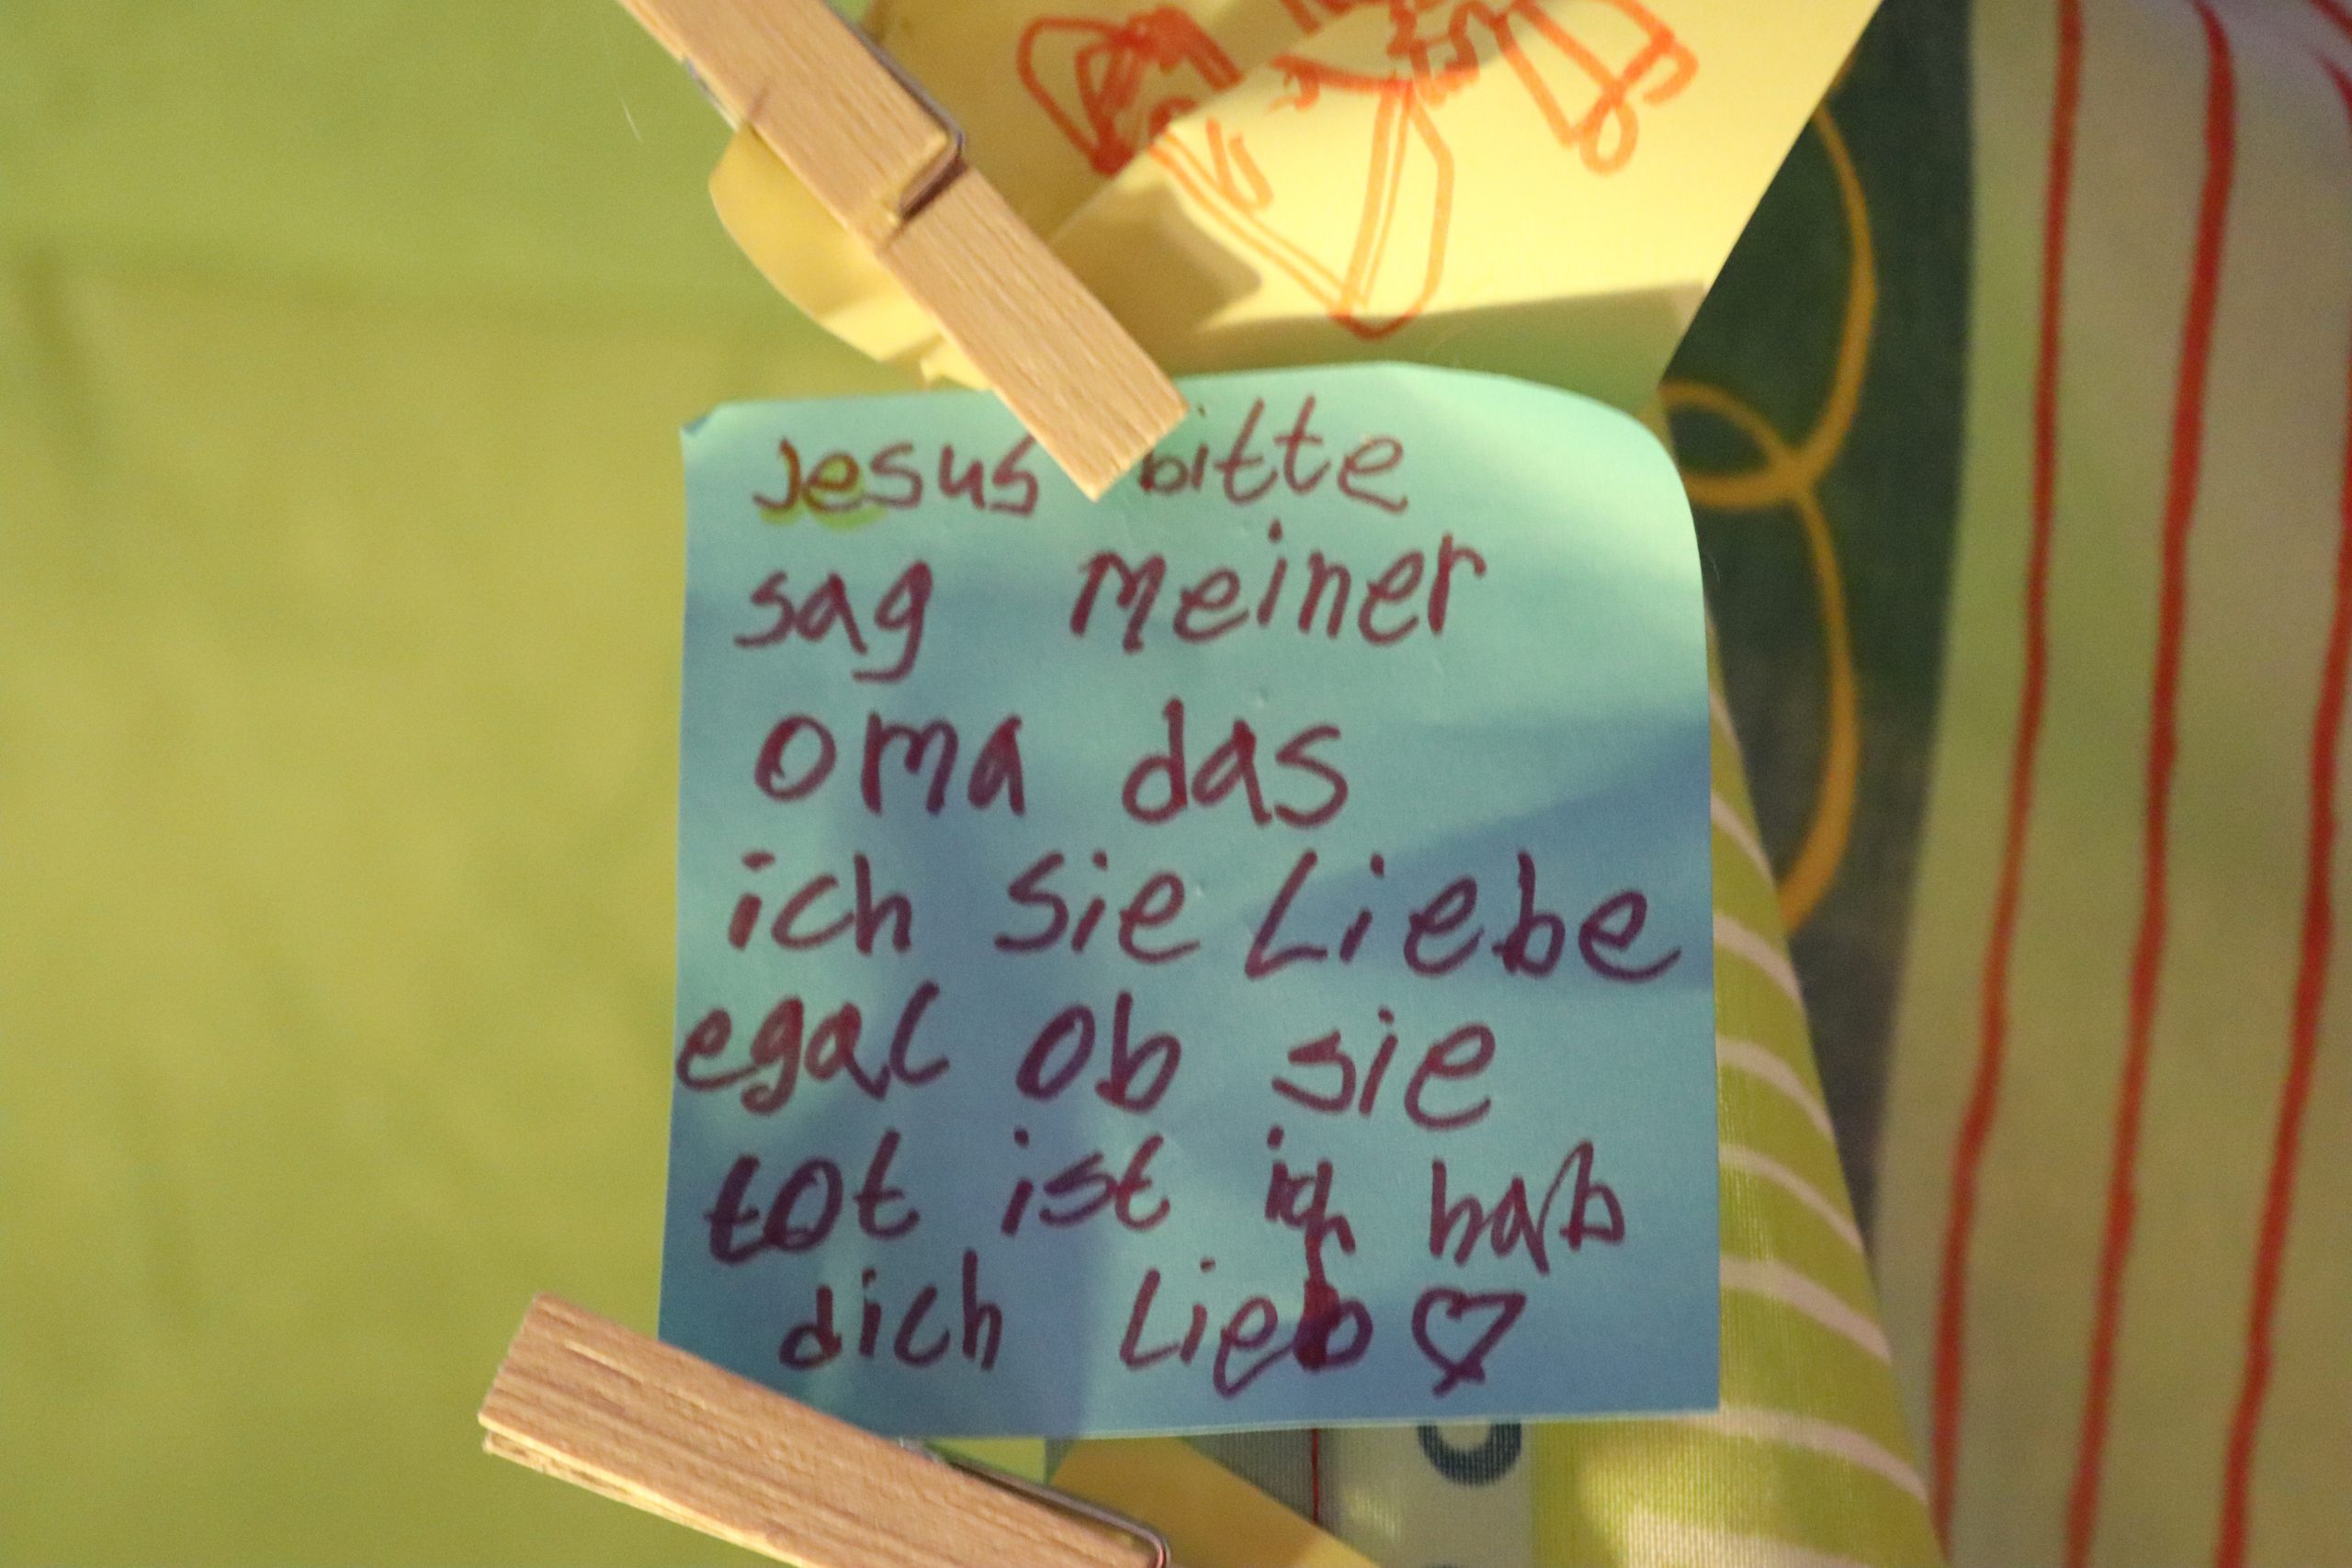 Jesus bitte
sag meiner
oma das
ich sie Liebe
egal ob sie
tot ist ich hab
dich Lieb♡